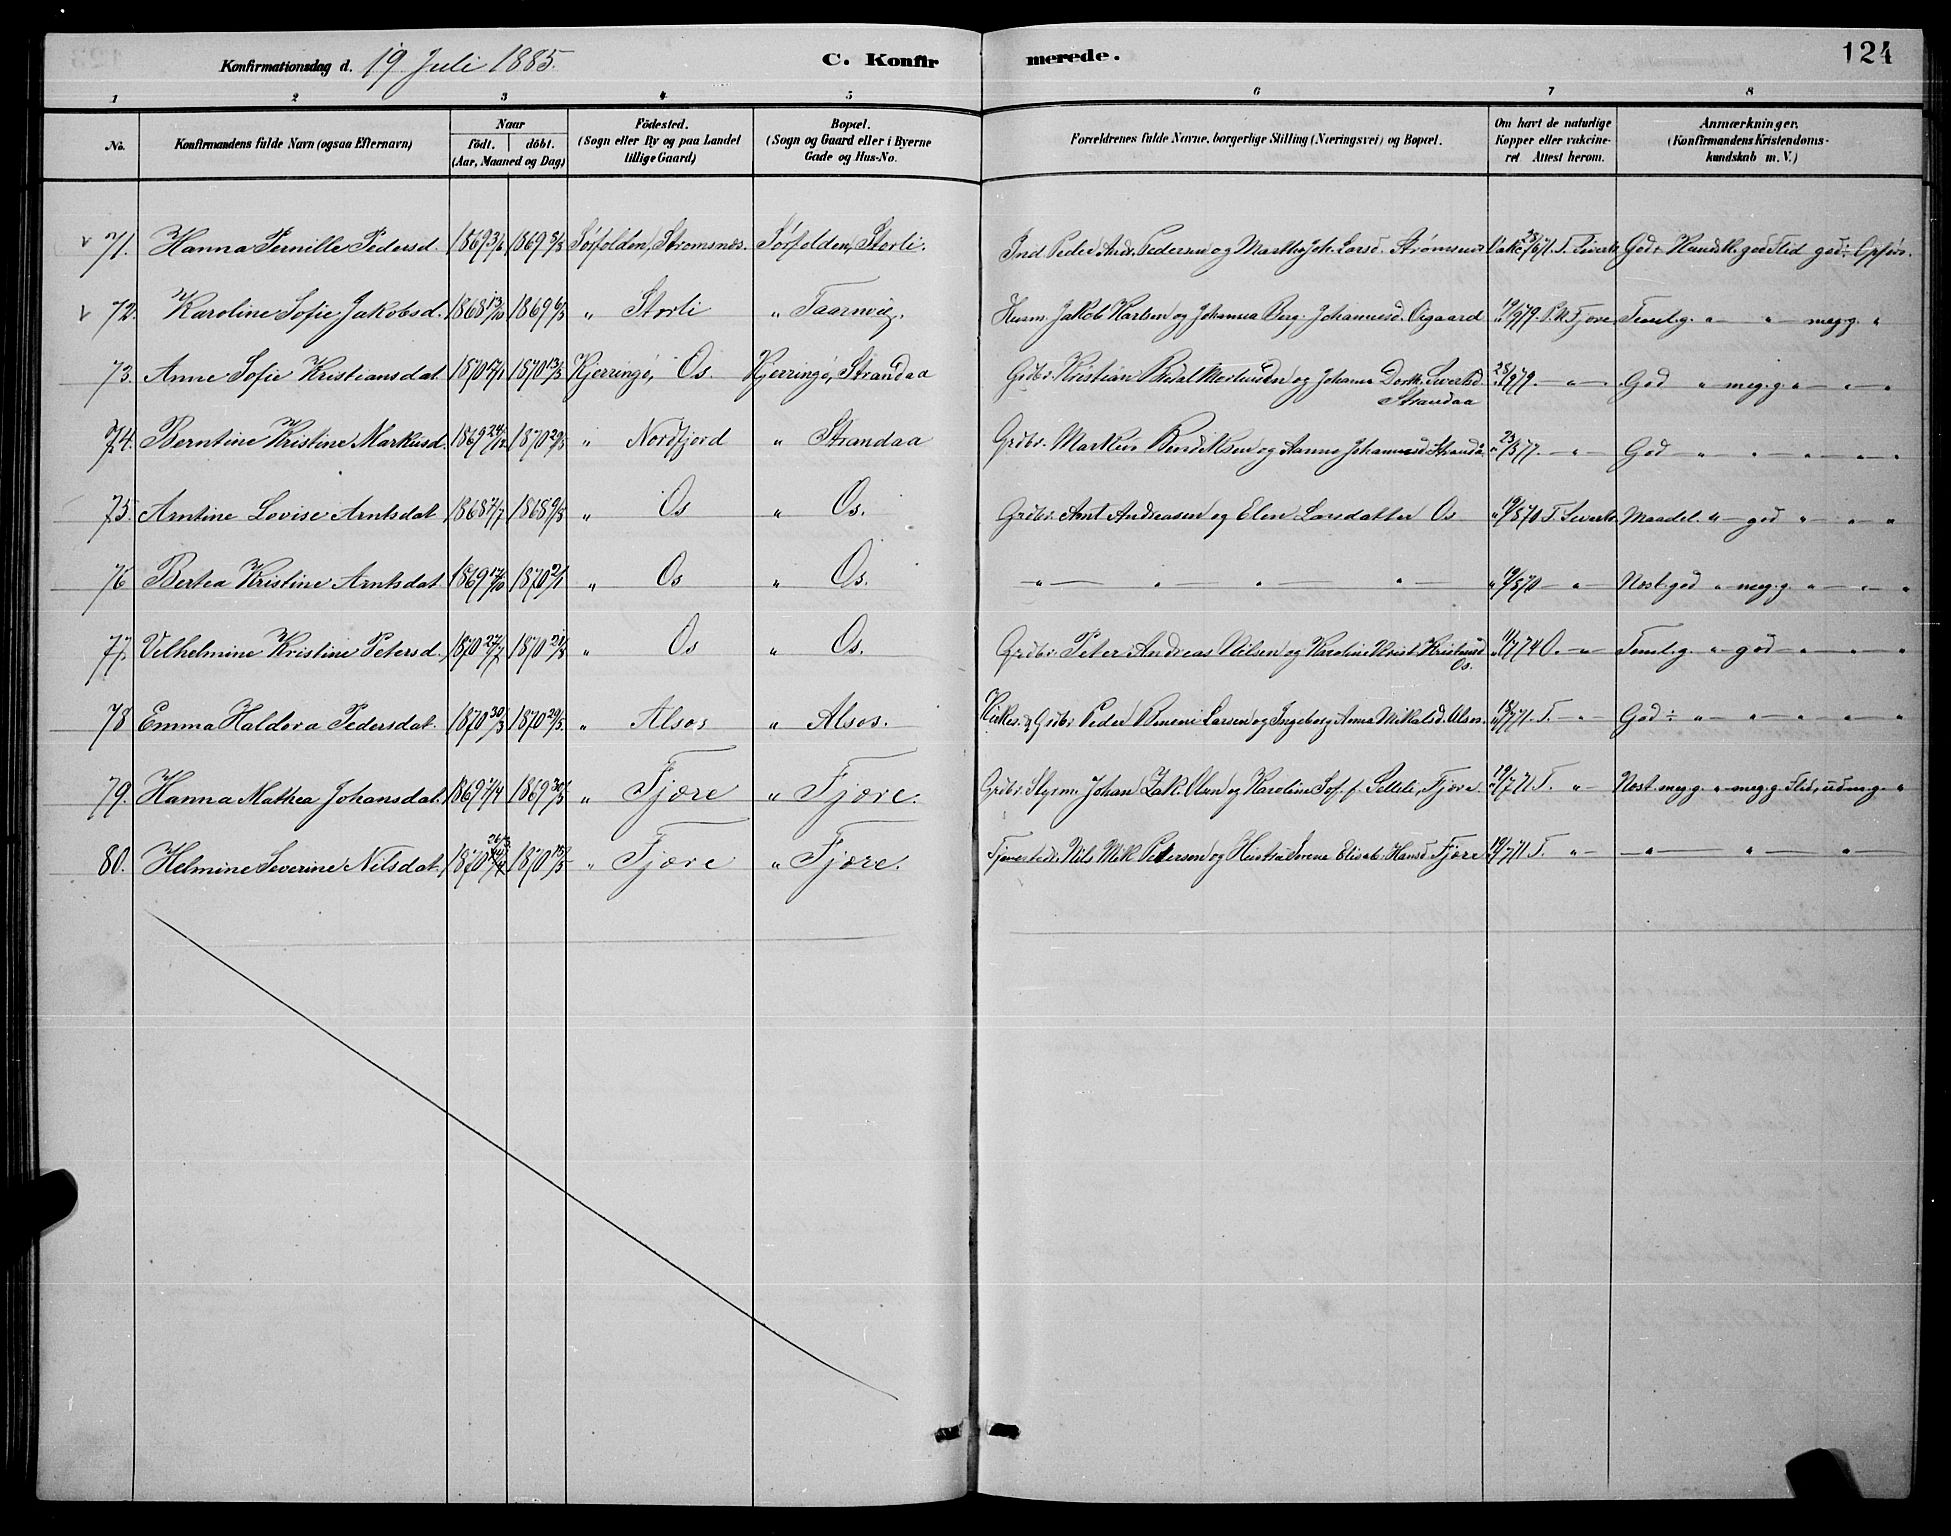 Konfirmationsdag d. 19 Juli 1885.
C. Konfir
merede.
124
1 2 3 4 5 6 7 8
No.
Konfirmandens fulde Navn (ogsaa Efternavn)
Naar
födt. döbt.
(Aar, Maaned og Dag)
Födested.
(Sogn eller By og paa Landet
tillige Gaard)
Bopæl.
(Sogn og Gaard eller i Byerne
Gade og Hus-No.
Forældrenes fulde Navne, borgerlige Stilling (Næringsvei) og Bopæl.
Om havt de naturlige
Kopper eller vakcine-
ret Attest herom.
Anmærkninger.
(Konfirmandens Kristendoms-
kundskab m. V.)
71. Hanna Pernille Pedersd. 1869 3/6 1869 Sørfolden, Strømsnes. Sørfolden, Storli. Ind Peder Andr. Pedersen og Martha Joh. Larsd. Strømsnes God Kundsk. god Flid god Opførs.
72. Karoline Sofie Jakobsd. 1868 13/10 1869 6/5 " Storli " Taarnvig. Husm. Jakob Karlsen og Johanna Berg. Johannesd. Øigaard 79. P.M. Fjøre Temlg. " " meg.g. "
73. Anne Sofie Kristiansdat. 1870 1870 13/5 Kjerringø, Os. Kjerringø, Strandaa Grdbr. Kristian Bedal Mortensen og Johanna Dorth. Sivertsd.
Strandaa 79. " God " meg.g " " "
74. Berntine Kristine Markusd. 1869 24/12 1870 29/5 " Nordfjord " Strandaa Grdbr. Markus Bendiksen og Hanna Johannesd. Strandå 77. " God " " " " "
75. Arntine Lovise Arntsdat. 1868 7/7 1868 9/8 " Os " Os. Grdbr. Arnt Andreasen og Elen Larsdatter Os 19/8 70 T. Siverts. Maadel. " god " " "
76 Bertea Kristine Arntsdat. 1869 17/10 1870 2/1 " Os " Os. " " " " 19/8 70 " Næst god " meg.g. " " "
77. Vilhelmine Kristine Petersd. 1870 27/7 1870 21/8 " Os " Os. Grdbr. Peter Andreas Nilsen og Karoline Krist. Kristensd.
Os. 11/7 74 O. " Temlg. " god " " "
78 Emma Haldora Pedersdat. 1870 30/3 1870 29/5. " Alsos " Alsos. Kirkes. & Grdbr. Peder Benoni Larsen og Ingeborg Anna Nikolaisd. Alsos. 18/7 71. T. " God " " " " "
79. Hanna Mathea Johansdat. 1869 7/4 1869 30/5 " Fjære " Fjære. Grdbr. Styrm. Johan Zak. Olsen og Karoline Sof. f. Fjære 19/7 71 T. " Næst meg.g. " meg.g. Flid, udm.g. "
80. Helmine Severine Nilsdat. 1870 1870 15/5 " Fjære " Fjære. Nils Mik. Petersen og Hustru Serena Elisab. Hansd. Fjære 19/7 71 T. " " " "